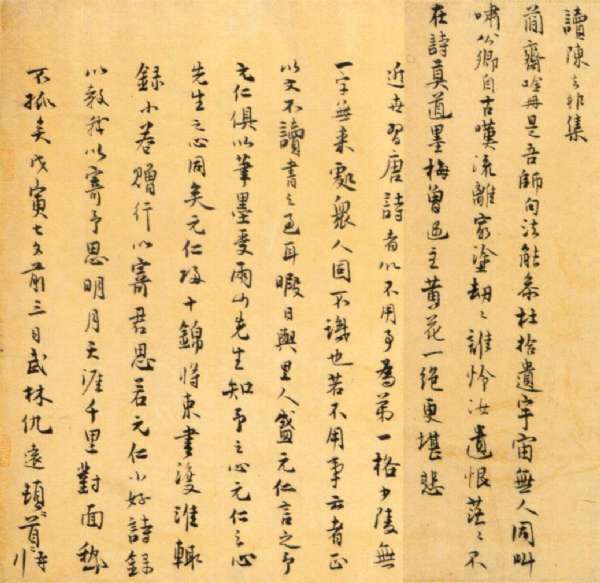 讀陳去非集
簡齋吟冊是吾師句法能參杜拾遺宇宙無人同叫
嘯公卿自古嘆流離窮塗劫〻誰怜汝遺恨茫〻不
在詩莫道墨梅曾遇主黃花一絕更堪悲
近世習唐詩者以不用事為第一格少陵無
一字無來處眾人固不識也若不用事云者正
以文不讀書之過耳暇日與里人盛元仁言之予
元仁俱以筆墨受雨山先生知予之心元仁之心
先生之心同矣元仁十錦將東書渡淮輒
錄小卷贈行以寄君思若元仁小好詩錄
以教我以寄予思明月天涯千里對面
不孤矣戊寅七夕前三日武林仇遠頓首再拜